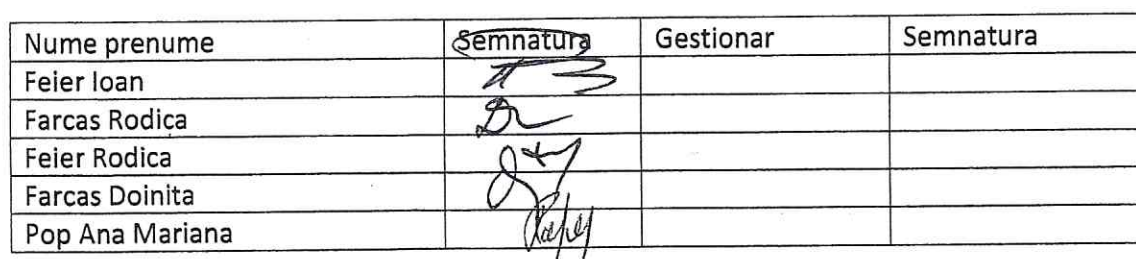 Nume prenume Semnatura Gestionar Semnatura
Feier Ioan
Farcas Rodica
Feier Rodica
Farcas Doinita
Pop Ana Mariana